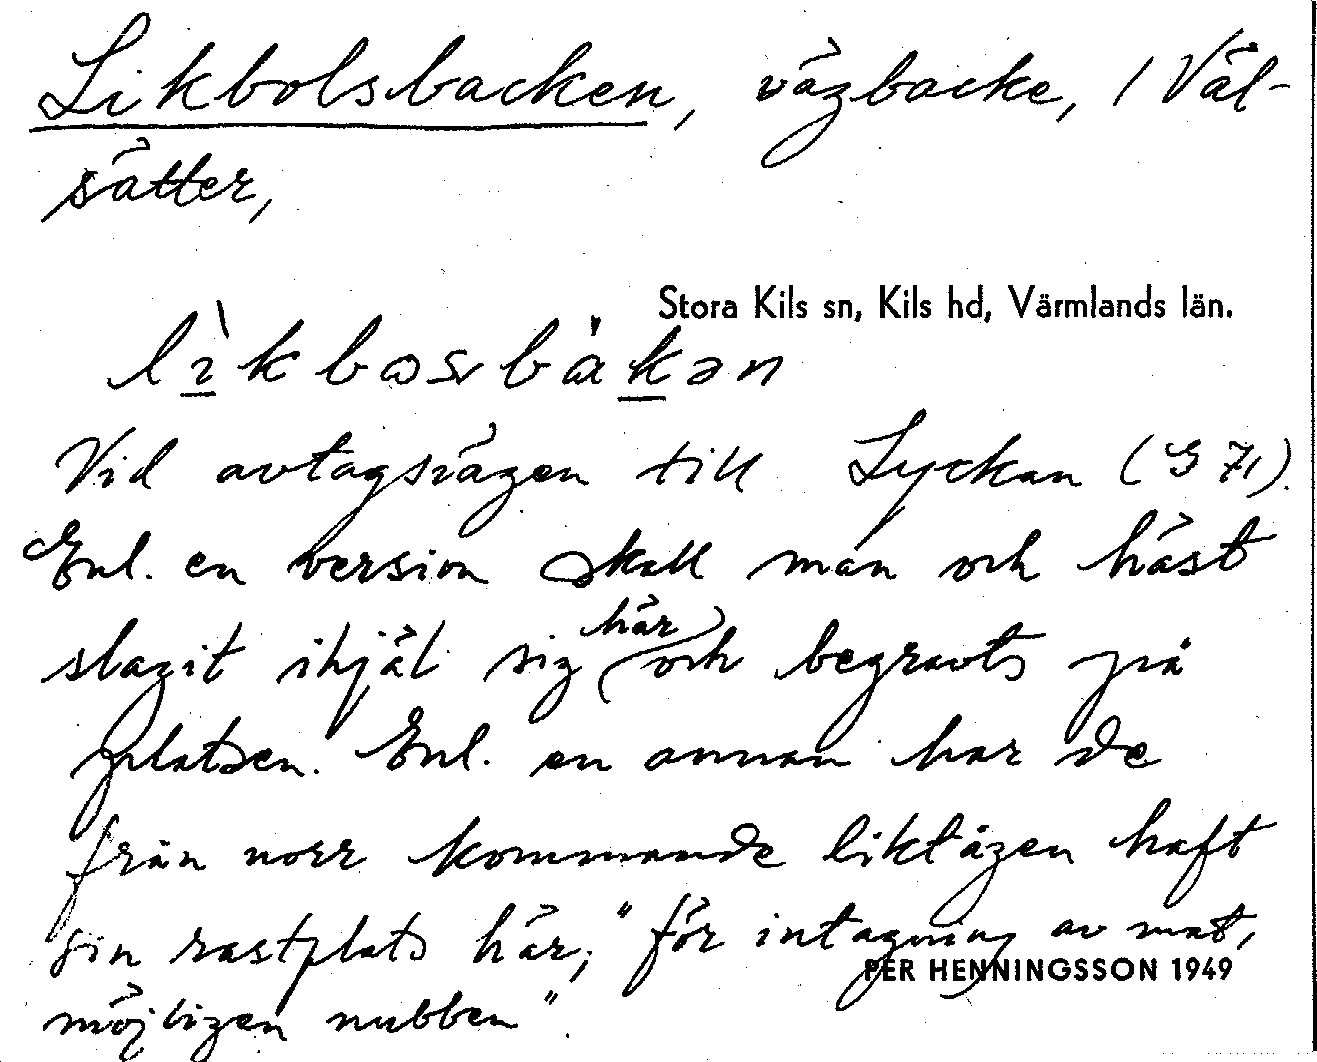 Likbolsbacken, vägbacke, / Väl-
sätter,
Stora Kils sn, Kils hd, Värmlands län.
Vid avtagsvägen till Lyckan (G 71).
Enl. en version skall man och häst
slagit ihjäl sig här och begravts på
platsen. Enl. en annan har de
från norr kommande liktågen haft
sin rastplats här, "för intagning av mat,
PER HENNINGSSON 1949
möjligen nubben".